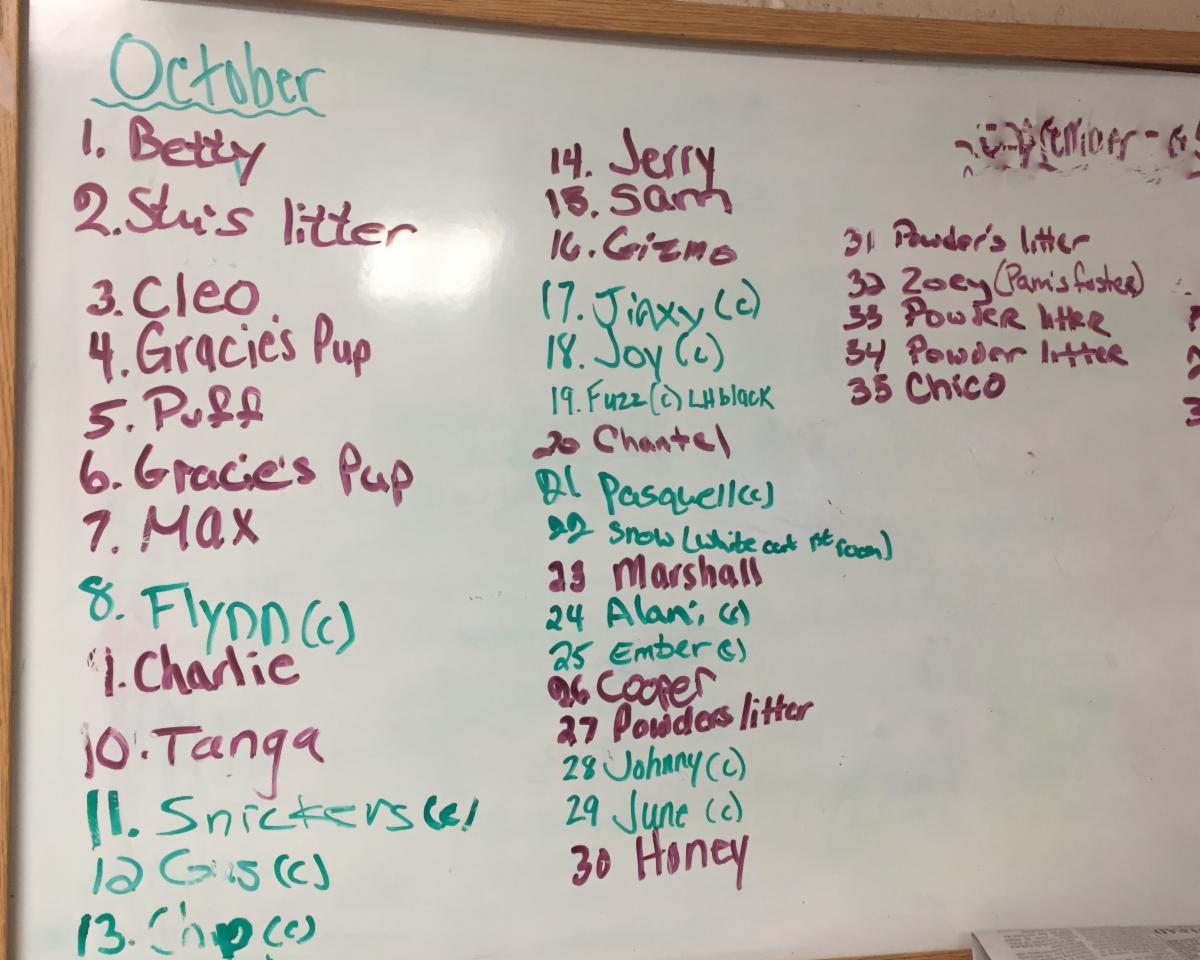 October
1. Betty
2. Stu's litter
3. Cleo
4. Gracie's Pup
5. Puff
6. Gracie's Pup
7. Max
8. Flynn (c)
9. Charlie
10. Tanga
11. Snickers (c)
12 Gus (c)
13. Chip (c)
14. Jerry
15. Sam
16. Gizmo
17. Jinxy (c)
18. Joy (c)
19. Fuzz (c) LH black
20 Chantel
21 Pasquell (c)
22 Snow (white cat 1st room)
23 Marshall
24 Alani (c)
25 Ember (c)
26 Cooper
27 Powders litter
28 Johnny (c)
29 June (c)
30 Honey
31 Powder's litter
32 Zoey (Pam's foster)
33 Powder litter
34 Powder litter
35 Chico